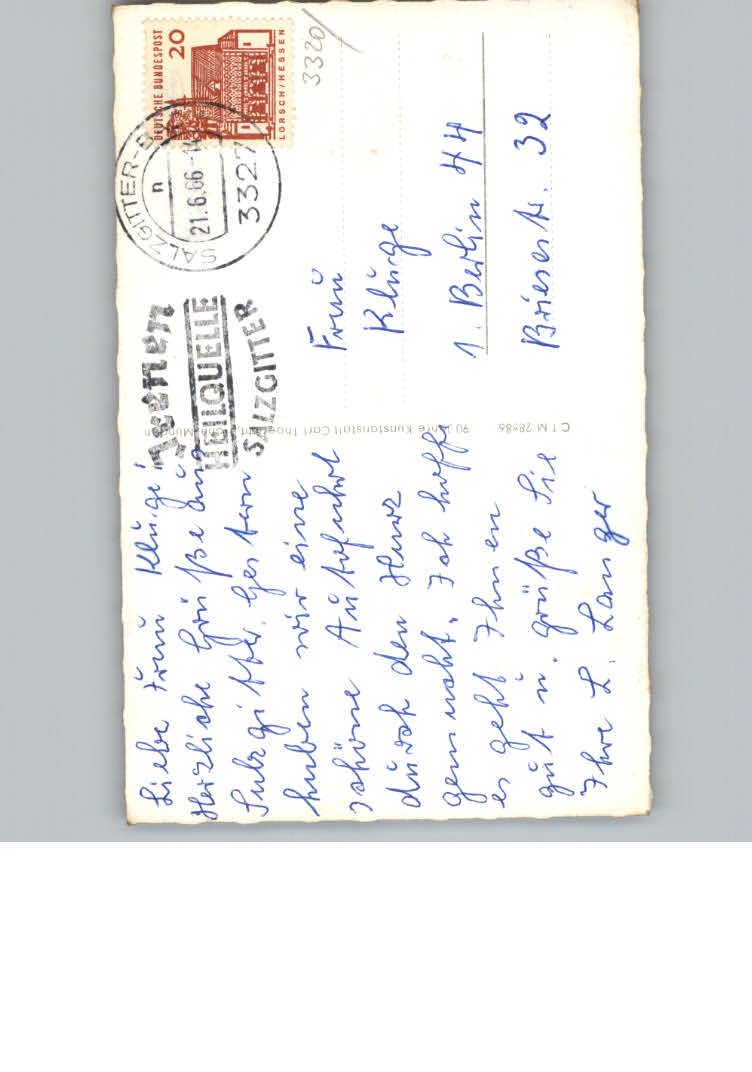 Liebe Frau Kluge!
Herzliche Grüße aus
Salzgitter. Gestern
haben wir eine
schöne Autofahrt
durch den Harz
gemacht. Ich hoffe
es geht Ihnen
gut u. grüße Sie
Ihre L. Langer
DEUTSCHE BUNDESPOST
20
LORSCH/HESSEN
3320
SALZGITTER-B
n
21.6.66-14
3327
HEILQUELLE
SALZGITTER
Frau
Kluge
1. Berlin 44
Briesestr. 32
C T M 28686 90 Jahre Kunstanstalt Carl